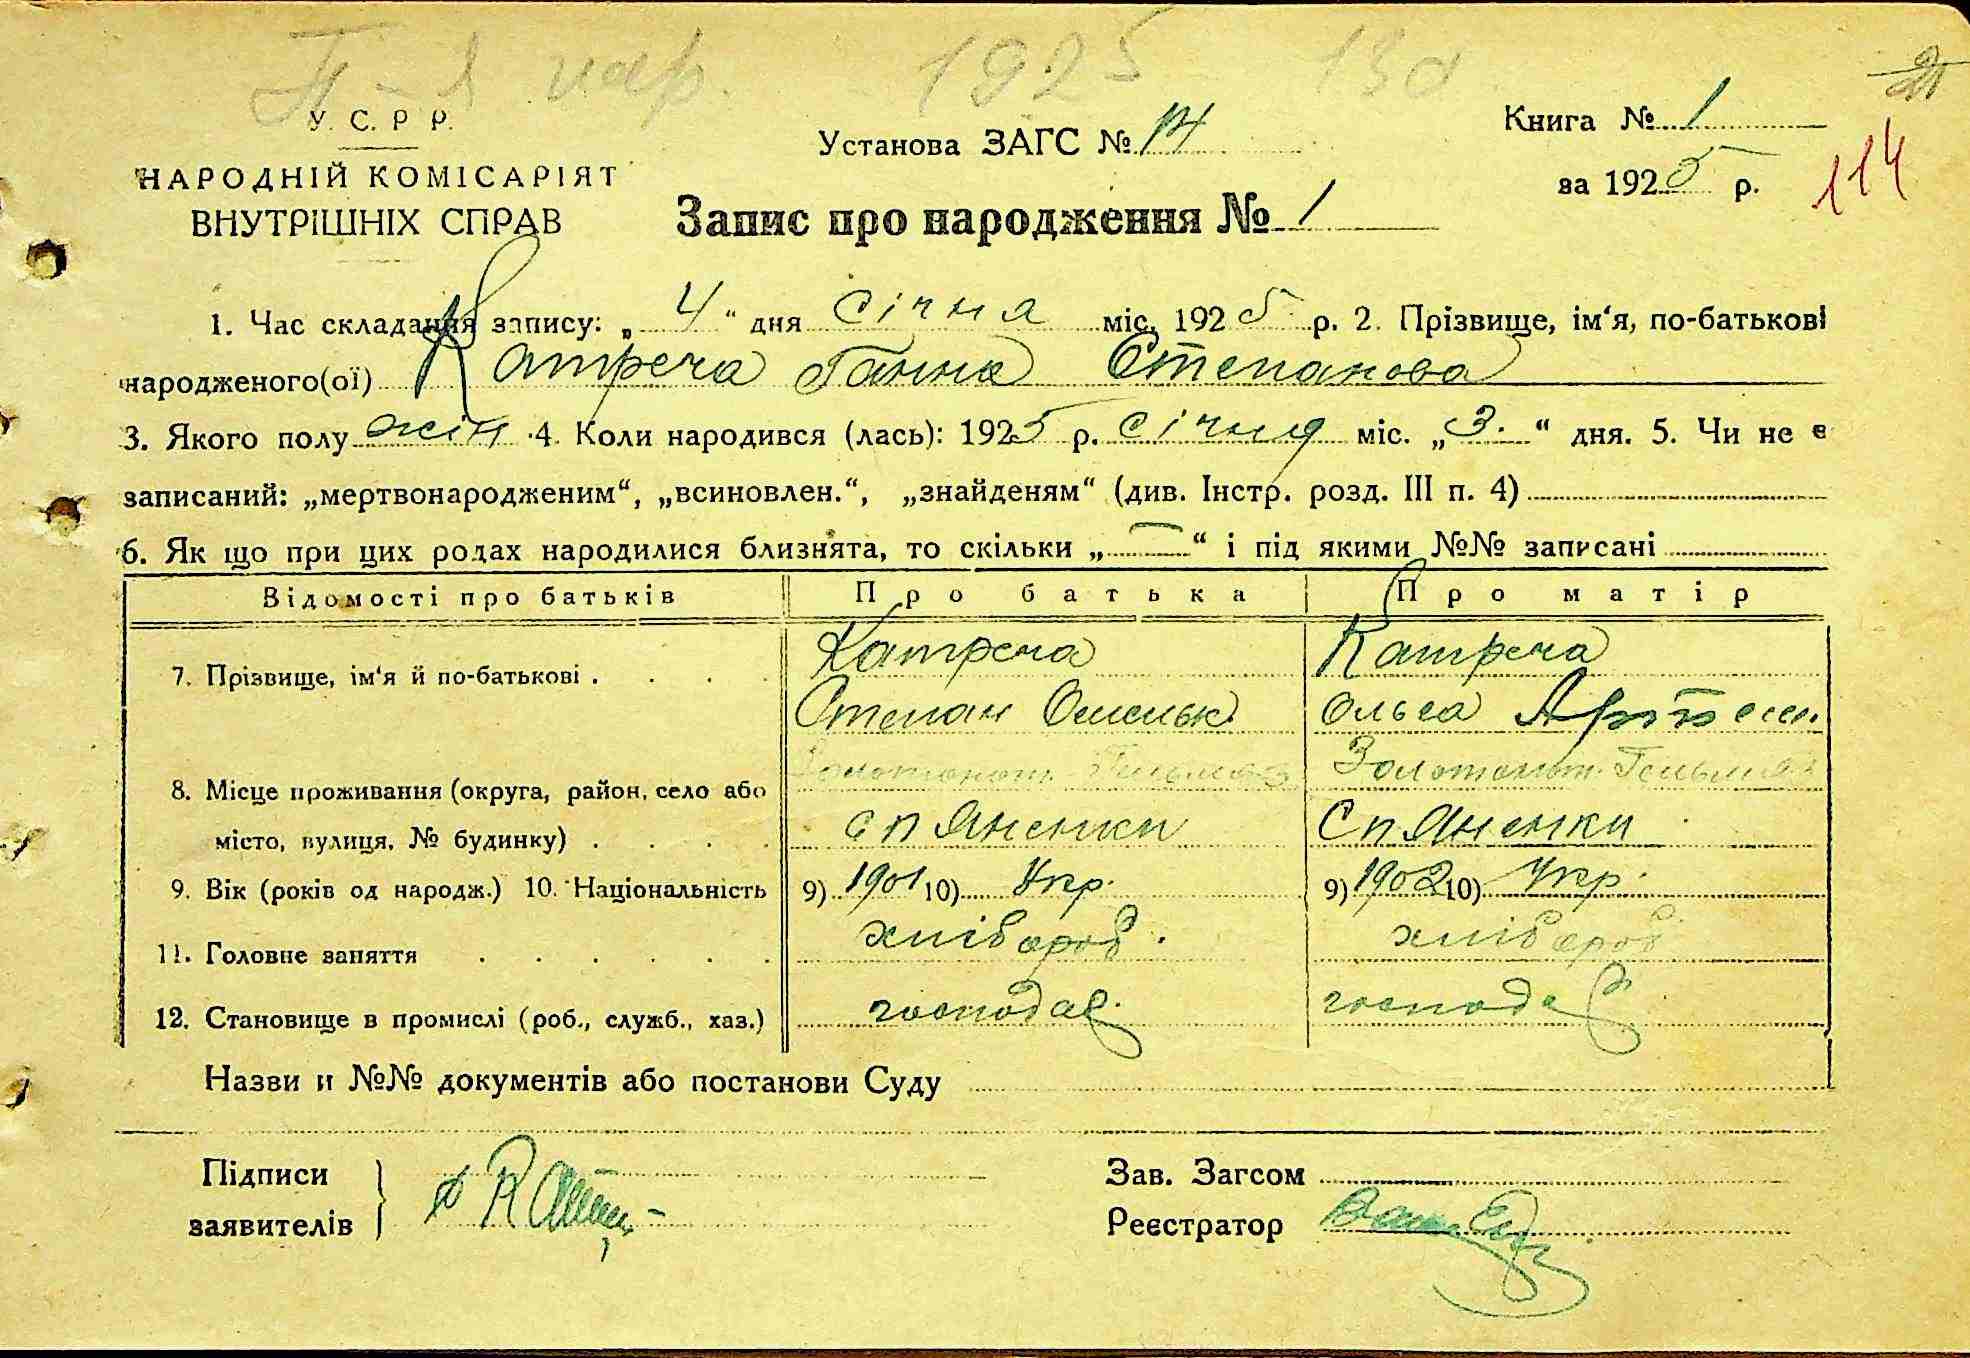 П-я нар. 1925 130
У. С. Р Р.
НАРОДНІЙ КОМІСАРІЯТ
ВНУТРІШНІХ СПРАВ
Установа ЗАГС № 14
Книга № 1
за 1925 р.
114
Запис про народження № 1
1. Час складання запису: „ 4 “ дня січня міс. 1925 р. 2. Прізвище, ім'я, по-батькові
народженого(ої) Катреча Ганна Степанова
3. Якого полу жін 4. Коли народився (лась): 1925 р. січня міс. „3.“ дня. 5. Чи не є
записаний: „мертвонародженим“, „всиновлен.“, „знайденям“ (див. Інстр. розд. III п. 4)
6. Як що при цих родах народилися близнята, то скільки „ — “ і під якими №№ записані
Відомості про батьків Про батька Про матір
7. Прізвище, ім'я й по-батькові . . . . Катреча Катреча
Степан Омельк. Ольга Артем.
Золотонош. Гельмяз Золотонош. Гельмяз
8. Місце проживання (округа, район, село або
місто, вулиця, № будинку) . . . . с Пляненки С Пляненки
9. Вік (років од народж.) 10. Національність 9) 1901 10) Укр. 9) 1902 10) Укр.
11. Головне заняття . . . . . . хлібороб. хлібороб
12. Становище в промислі (роб., служб., хаз.) господар. господар
Назви и №№ документів або постанови Суду
Підписи
заявителів
Зав. Загсом
Реєстратор